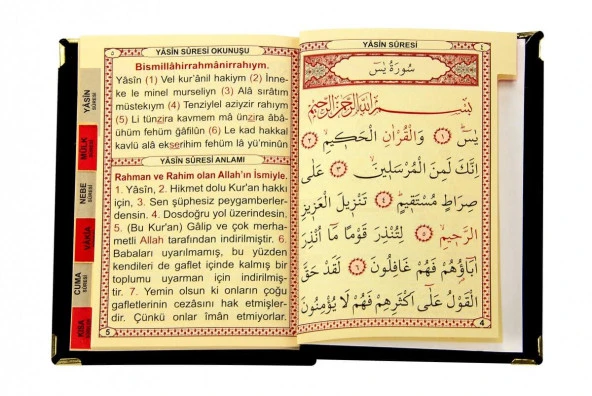 ٥
YÂSÎN SÛRESİ OKUNUŞU
Bismillâhirrahmânirrahıym.
Yâsîn (1) Vel kur'ânil hakiym (2) İnne-
ke le minel murseliyn (3) Alâ sırâtım
müstekıym (4) Tenziylel aziyzir rahıym
(5) Li tünzira kavmem mâ ünzira âbâ-
ühüm fehüm gâfilûn (6) Le kad hakkal
kavlü alâ ekserihim fehüm lâ yü'minûn
YÂSÎN SÛRESİ ANLAMI
Rahman ve Rahim olan Allah'ın İsmiyle.
1. Yâsîn, 2. Hikmet dolu Kur'an hakkı
için, 3. Sen şüphesiz peygamberler-
densin. 4. Dosdoğru yol üzerindesin,
5. (Bu Kur'an) Gâlip ve çok merha-
metli Allah tarafından indirilmiştir. 6.
Babaları uyarılmamış, bu yüzden
kendileri de gaflet içinde kalmış bir
toplumu uyarman için indirilmiş-
tir. 7. Yemin olsun ki onların çoğu
gafletlerinin cezâsını hak etmişler-
dir. Çünkü onlar îmân etmiyorlar.
5
YÂSÎN
SÛRESİ
MÜLK
SÛRESİ
NEBE
SÛRESİ
VÂKIA
SÛRESİ
CUMA
SÛRESİ
KISA
SÛRELER
YÂSÎN SÛRESİ
٤
سُورَةُ يٰسٓ
بِسْمِ اللّٰهِ الرَّحْمٰنِ الرَّحِيمِ
يٰسٓ ﴿١﴾ وَالْقُرْاٰنِ الْحَكِيمِۙ ﴿٢﴾
اِنَّكَ لَمِنَ الْمُرْسَلِينَۙ ﴿٣﴾ عَلٰى
صِرَاطٍ مُسْتَقِيمٍۜ ﴿٤﴾ تَنْزِيلَ الْعَزِيزِ
الرَّحِيمِۙ ﴿٥﴾ لِتُنْذِرَ قَوْمًا مَٓا اُنْذِرَ
اٰبَٓاؤُ۬هُمْ فَهُمْ غَافِلُونَ ﴿٦﴾ لَقَدْ حَقَّ
الْقَوْلُ عَلٰٓى اَكْثَرِهِمْ فَهُمْ لَا يُؤْمِنُونَ
4